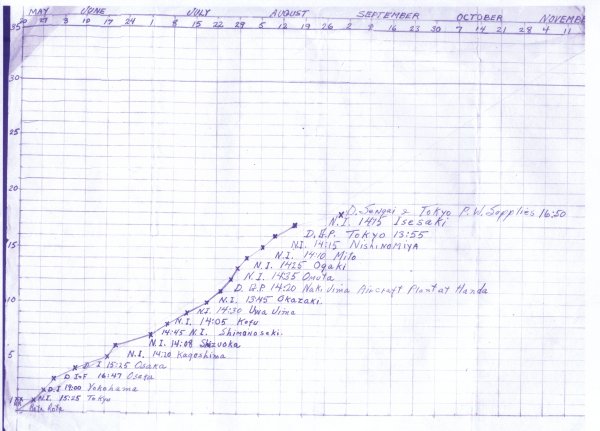 MAY JUNE JULY AUGUST SEPTEMBER OCTOBER NOVEMBER
20 27 3 10 17 24 1 8 15 22 29 5 12 19 26 2 9 16 23 30 7 14 21 28 4 11
35
30
25
20
D. Sengai & Tokyo P.W. Supplies 16:50
N.I. 14:15 Isesaki
D.G.P. Tokyo 13:55
15
N.I. 14:15 NISHINOMIYA
N.I. 14:10 Mito
N.I. 14:25 Ogaki
N.I. 14:35 Omuta
D.G.P. 14:20 Nakijima Aircraft Plant at Handa
10
N.I. 13:45 Okazaki
N.I. 14:30 Uwa Jima
N.I. 14:05 Kofu
14:45 N.I. Shimonoseki
N.I. 14:08 Shizuoka
5
N.I. 14:20 Kagoshima
D.I 15:25 Osaka
D.I-F 16:47 Osaka
D.I 14:00 Yokohama
1
N.I. 15:25 Tokyo
Rota